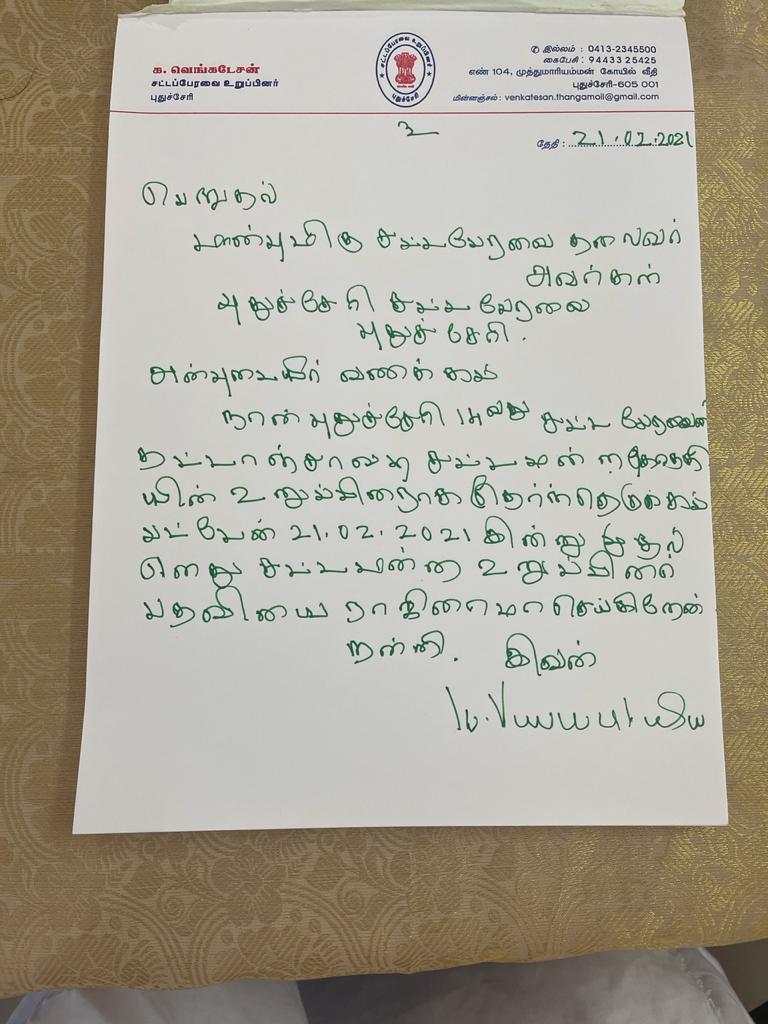 க. வெங்கடேசன்
சட்டப்பேரவை உறுப்பினர்
புதுச்சேரி
சட்டப்பேரவை உறுப்பினர்
புதுச்சேரி
இல்லம் : 0413-2345500
கைபேசி : 94433 25425
எண் 104, முத்துமாரியம்மன் கோயில் வீதி
புதுச்சேரி-605 001
மின்னஞ்சல் : venkatesan.thangamoil@gmail.com
உ
தேதி : 21.02.2021
பெறுதல்
மாண்புமிகு சட்டபேரவை தலைவர்
அவர்கள்
புதுச்சேரி சட்டபேரவை
புதுச்சேரி.
அன்புடையீர் வணக்கம்
நான் புதுச்சேரி 14வது சட்ட பேரவையின்
தட்டாஞ்சாவடி சட்டமன்ற தொகுதி
யின் உறுப்பினராக தேர்ந்தெடுக்கப்
பட்டேன் 21.02.2021 இன்று முதல்
எனது சட்டமன்ற உறுப்பினர்
பதவியை ராஜினாமா செய்கிறேன்
நன்றி. இவன்